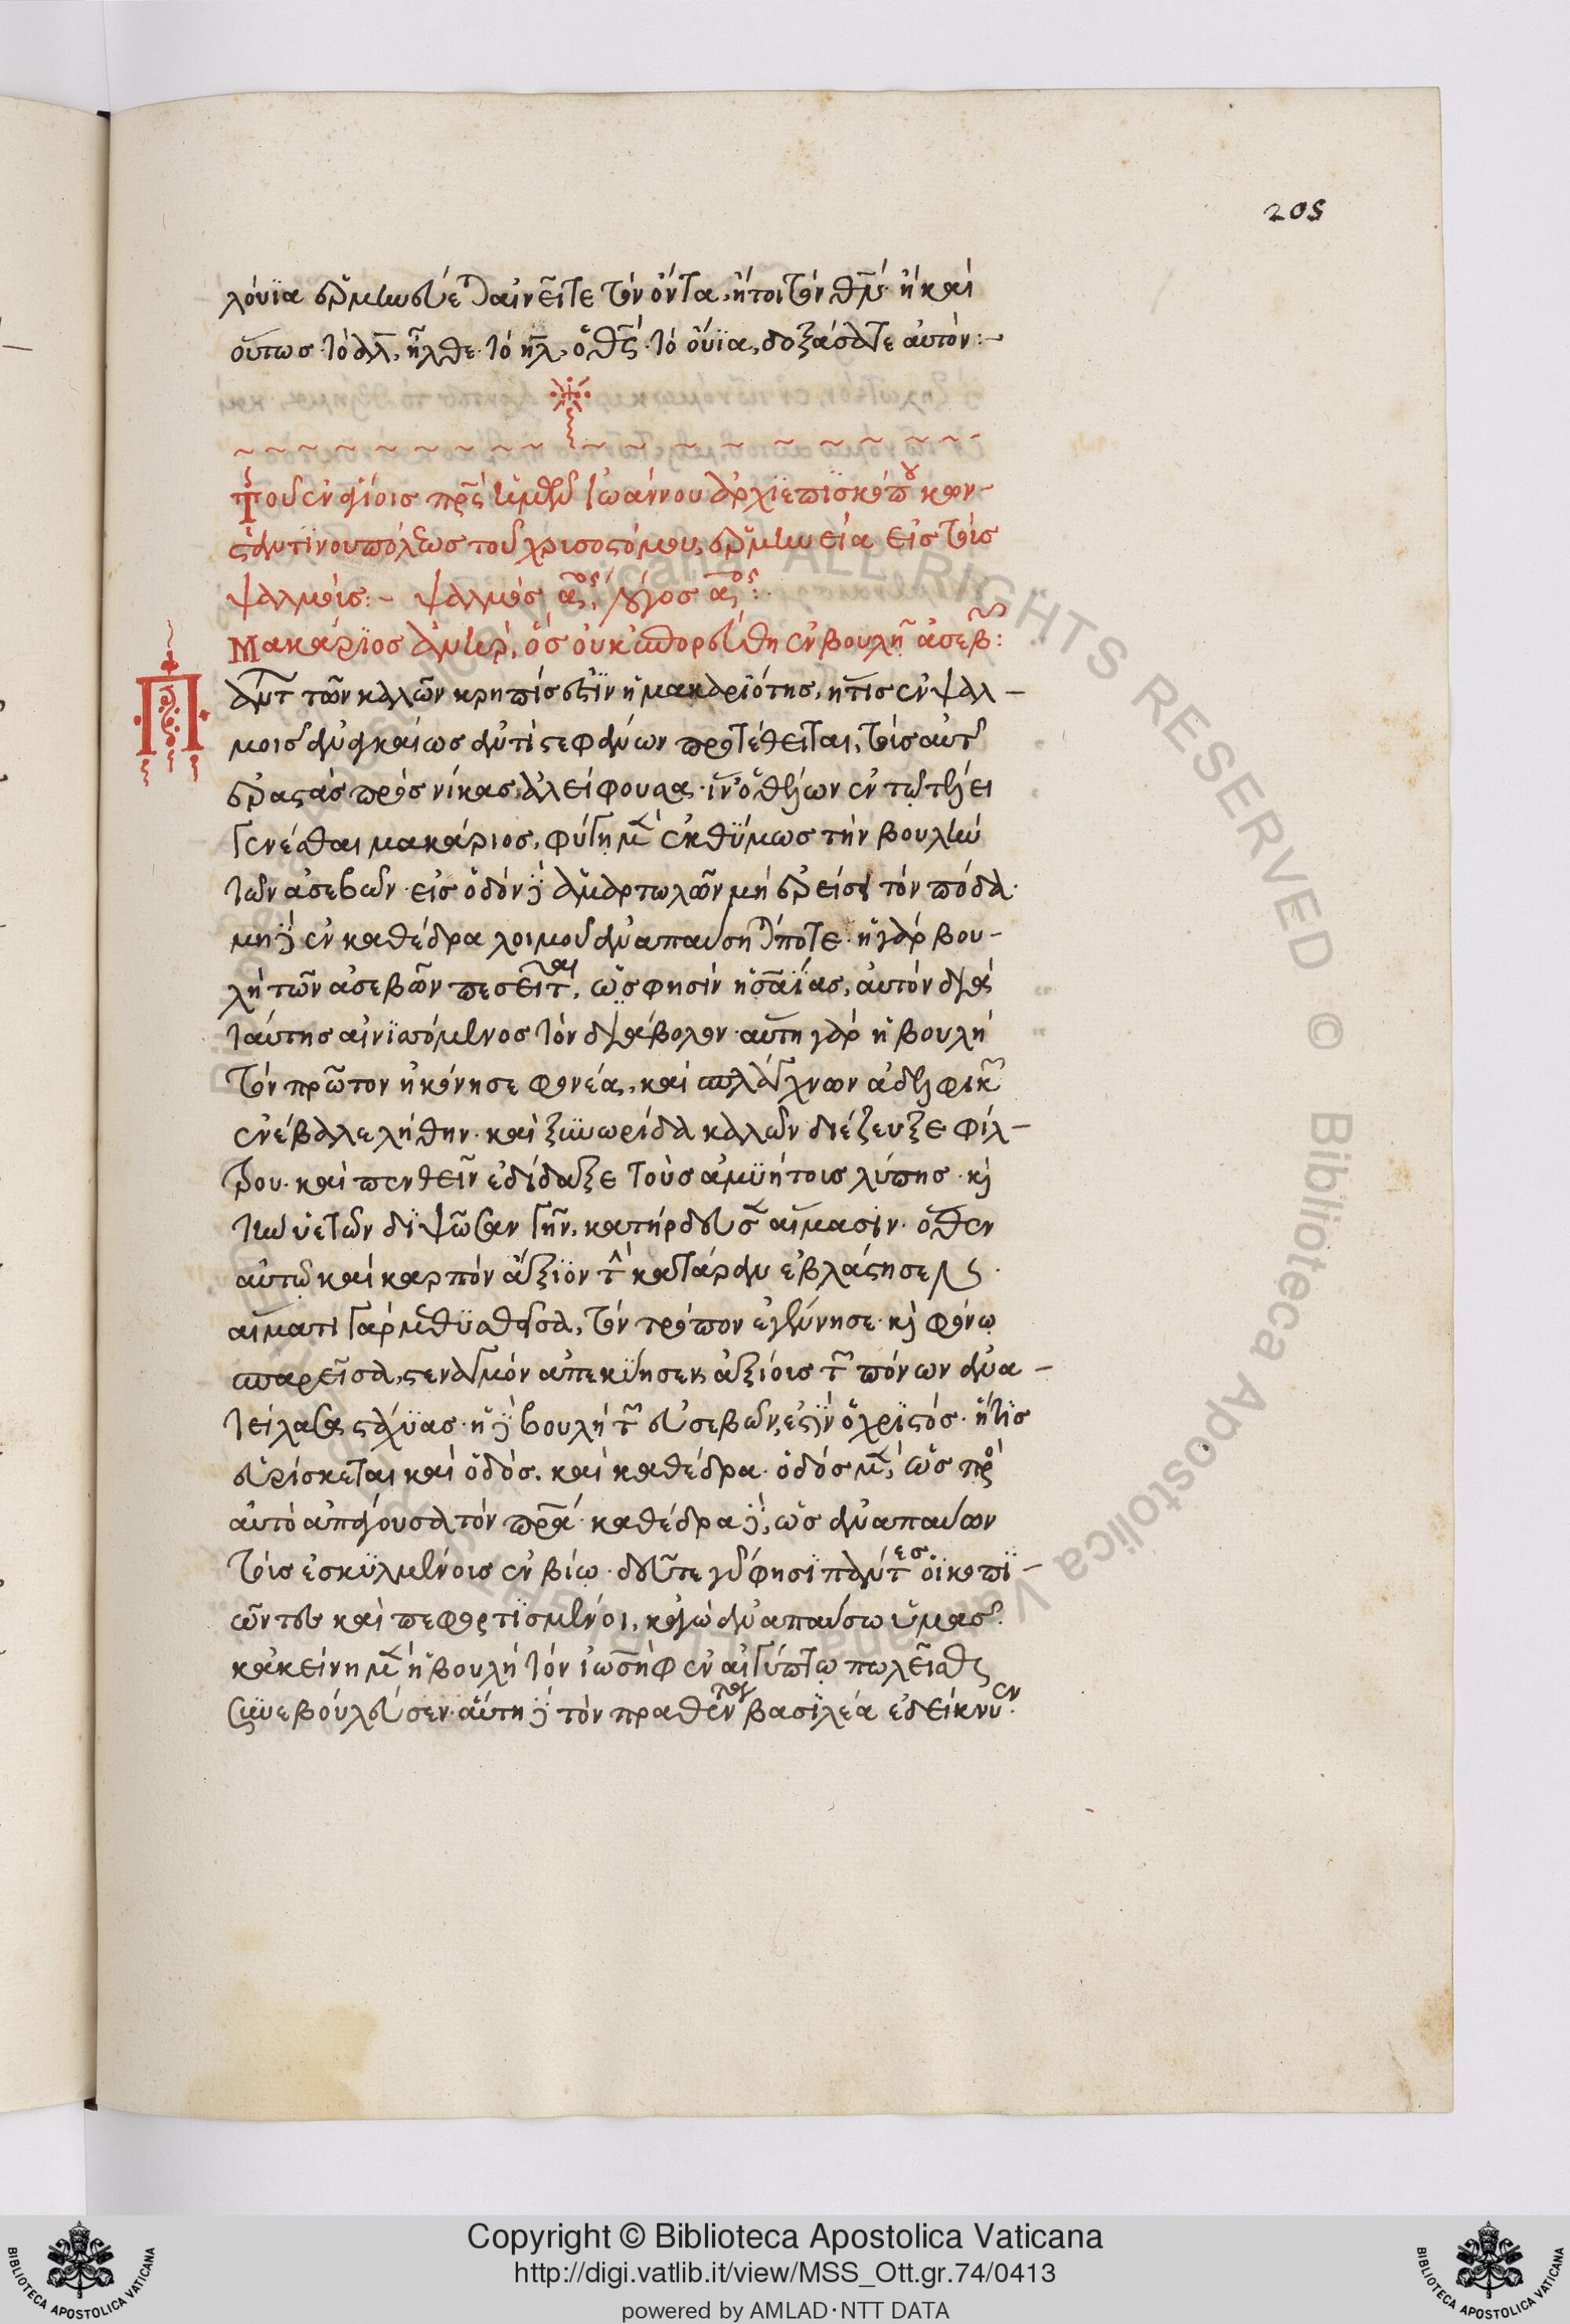 205
λούϊα ἑρμηνεύεται αἰνεῖτε τὸν ὄντα, ἤτοι τὸν θν· ἢ καὶ
οὕτως· τὸ ἀλ, ἦλθε· τὸ ηλ, ὁ θς· τὸ οὔϊα, δοξάσατε αὐτόν:-
Τοῦ ἐν ἁγίοις πρς ἡμῶν Ἰωάννου ἀρχϊεπϊσκόπου κων-
σταντϊνουπόλεως τοῦ χρυσοστόμου, ἑρμηνεία εἰς τοὺς
ψαλμούς:- ψαλμὸς αος, λόγος αος:
Μακάρϊος ἀνὴρ, ὃς οὐκ ἐπορεύθη ἐν βουλῇ ἀσεβῶν:
Π
άντων τῶν καλῶν κρηπίς ἐστϊν ἡ μακαρϊότης, ἥτις ἐν ψαλ-
μοῖς ἀναγκαίως ἀντὶ στεφάνων προτέθειται, τοὺς αὐτῆς
ἐραστὰς πρὸς νίκας ἀλείφουσα· ἵν' ὁ θέλων ἐν τῷ τέλει
γενέσθαι μακάριος, φύγῃ μὲν ἐκθύμως τὴν βουλὴν
τῶν ἀσεβῶν· εἰς ὁδὸν δὲ ἁμαρτωλῶν μὴ ἐρείσῃ τὸν πόδα·
μὴ δὲ ἐν καθέδρα λοιμοῦ ἀναπαύσηταί ποτε· ἡ γὰρ βου-
λὴ τῶν ἀσεβῶν πεσεῖται, ὥς φησιν ἡσαΐας, αὐτὸν διὰ
ταύτης αἰνϊττόμενος τὸν διάβολον· αὕτη γὰρ ἡ βουλὴ
τὸν πρῶτον ἠκόνησε φονέα, καὶ σπλάγχνων ἀδελφικῶν
ἐνέβαλε λήθην· καὶ ξυνωρίδα καλῶν διέζευξε φίλ-
τρου· καὶ πενθεῖν ἐδίδαξε τοὺς ἀμυήτοις λύπης· καὶ
τὴν ὑετῶν δϊψῶσαν γῆν, κατήρδευσεν αἵμασϊν· ὅθεν
αὐτῷ καὶ καρπὸν ἄξϊον τῶν κατάραν ἐβλάστησε
αἵματι γὰρ μεθϋσθεῖσα, τὸν τρόπον ἐγέννησε· καὶ φόνῳ
σπαρεῖσα, στεναγμὸν ἀπεκύησεν, ἀξίοις τῶν πόνων ἀνα-
τείλασα στάχϋας· ἡ δὲ βουλὴ τῶν εὐσεβῶν, ἐστϊν ὁ χρϊστός· ἥτϊς
εὑρίσκεται καὶ ὁδὸς, καὶ καθέδρα· ὁδὸς μὲν, ὡς πρὸς
αὐτὸ ἀπάγουσα τὸν πρα· καθέδρα δὲ, ὡς ἀναπαύων
τοὺς ἐσκϋλμένοις ἐν βίῳ· δεῦτε γάρ φησϊ πάντες οἱ κοπϊ-
ῶντες καὶ πεφορτϊσμένοι, κἀγὼ ἀναπαύσω ὑμᾶς·
κἀκείνη μὲν ἡ βουλὴ τὸν ἰωσὴφ ἐν αἰγύπτῳ πωλεῖσθαι
συνεβούλευσεν· αὕτη δὲ τὸν πραθέντα βασϊλέα ἐδείκνυεν·
Copyright © Biblioteca Apostolica Vaticana
http://digi.vatlib.it/view/MSS_Ott.gr.74/0413
powered by AMLAD·NTT DATA
BIBLIOTECA APOSTOLICA VATICANA
BIBLIOTECA APOSTOLICA VATICANA